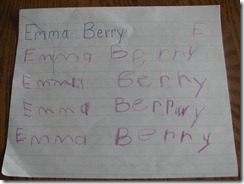 Emma Berry E
Emma Berry
Emma Berry
Emma Berrwy
Emma Berry